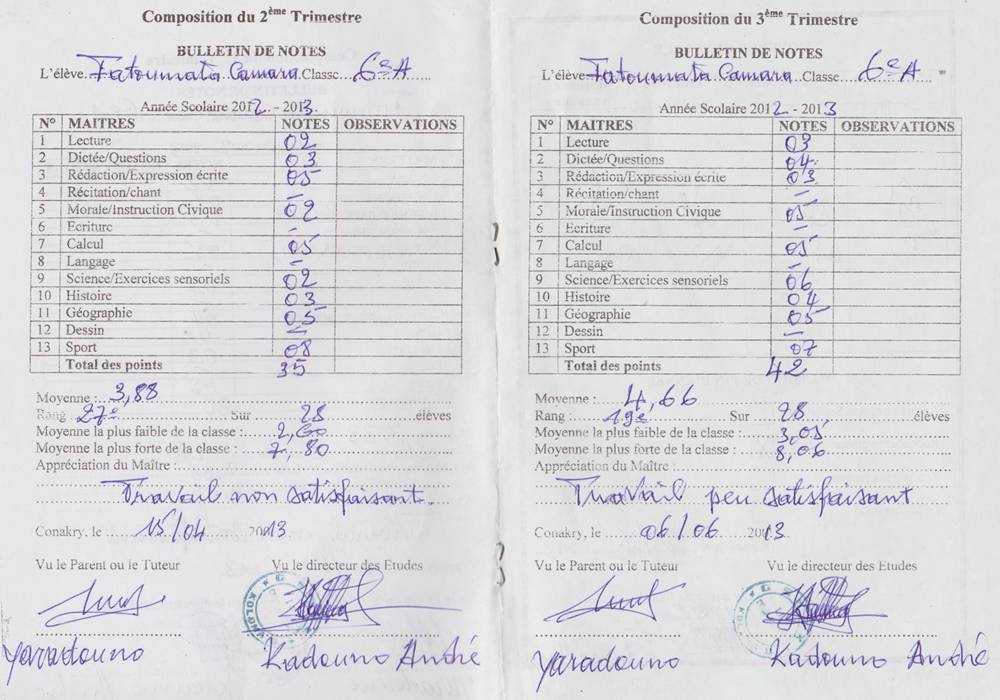 Composition du 2ème Trimestre
BULLETIN DE NOTES
L'élève Fatoumata Camara Classe 6e A
Année Scolaire 2012 - 2013
N° MAITRES NOTES OBSERVATIONS
1 Lecture 02
2 Dictée/Questions 03
3 Rédaction/Expression écrite 05
4 Récitation/chant —
5 Morale/Instruction Civique 02
6 Ecriture -
7 Calcul 05
8 Langage —
9 Science/Exercices sensoriels 02
10 Histoire 03
11 Géographie 05
12 Dessin —
13 Sport 08
Total des points 35
Moyenne : 3,88
Rang 27e Sur 28 élèves
Moyenne la plus faible de la classe : 2,60
Moyenne la plus forte de la classe : 7,80
Appréciation du Maître :
Travail non satisfaisant.
Conakry, le 15/04 2013
Vu le Parent ou le Tuteur Vu le directeur des Etudes
Yaradouno Kadouno André
Composition du 3ème Trimestre
BULLETIN DE NOTES
L'élève Fatoumata Camara Classe 6e A
Année Scolaire 2012 - 2013
N° MAITRES NOTES OBSERVATIONS
1 Lecture 03
2 Dictée/Questions 04
3 Rédaction/Expression écrite 03
4 Récitation/chant —
5 Morale/Instruction Civique 05
6 Ecriture —
7 Calcul 05
8 Langage —
9 Science/Exercices sensoriels 06
10 Histoire 04
11 Géographie 05
12 Dessin —
13 Sport 07
Total des points 42
Moyenne : 4,66
Rang : 19e Sur 28 élèves
Moyenne la plus faible de la classe : 3,05
Moyenne la plus forte de la classe : 8,06
Appréciation du Maître :
Travail peu satisfaisant
Conakry, le 06/06 2013
Vu le Parent ou le Tuteur Vu le directeur des Etudes
Yaradouno Kadouno André